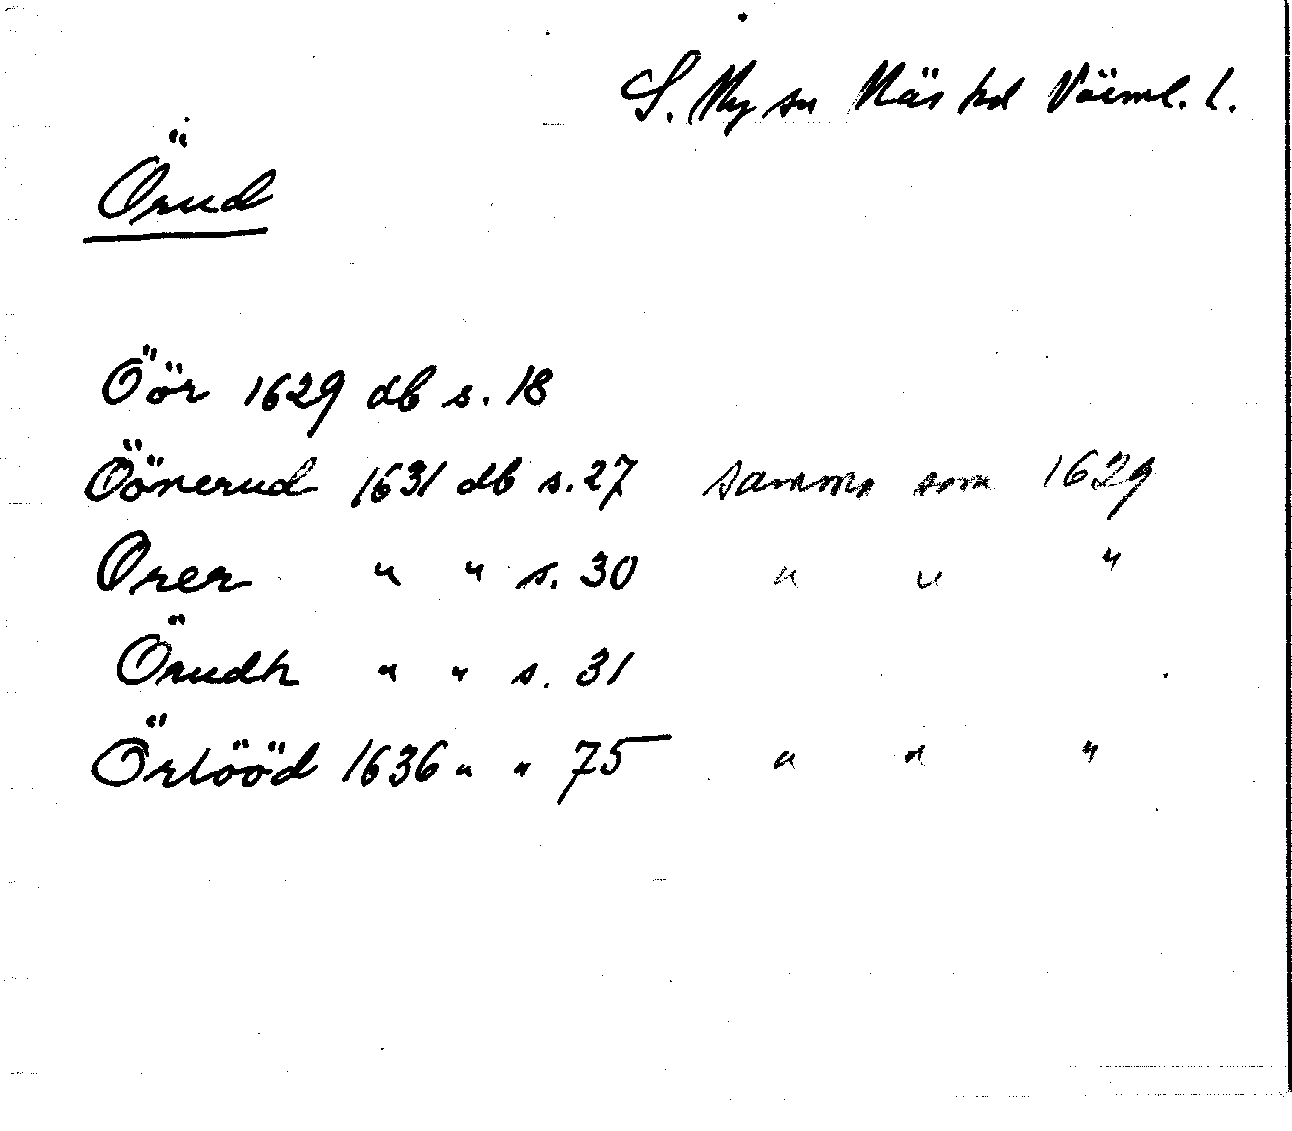 S. Ny sn Näs hd Värml. l.
Örud
Öör 1629 db s. 18
Öönerud 1631 db s. 27 samma som 1629
Orer " " s. 30 " " "
Örudh " " s. 31
Örlööd 1636 " " 75 " " "